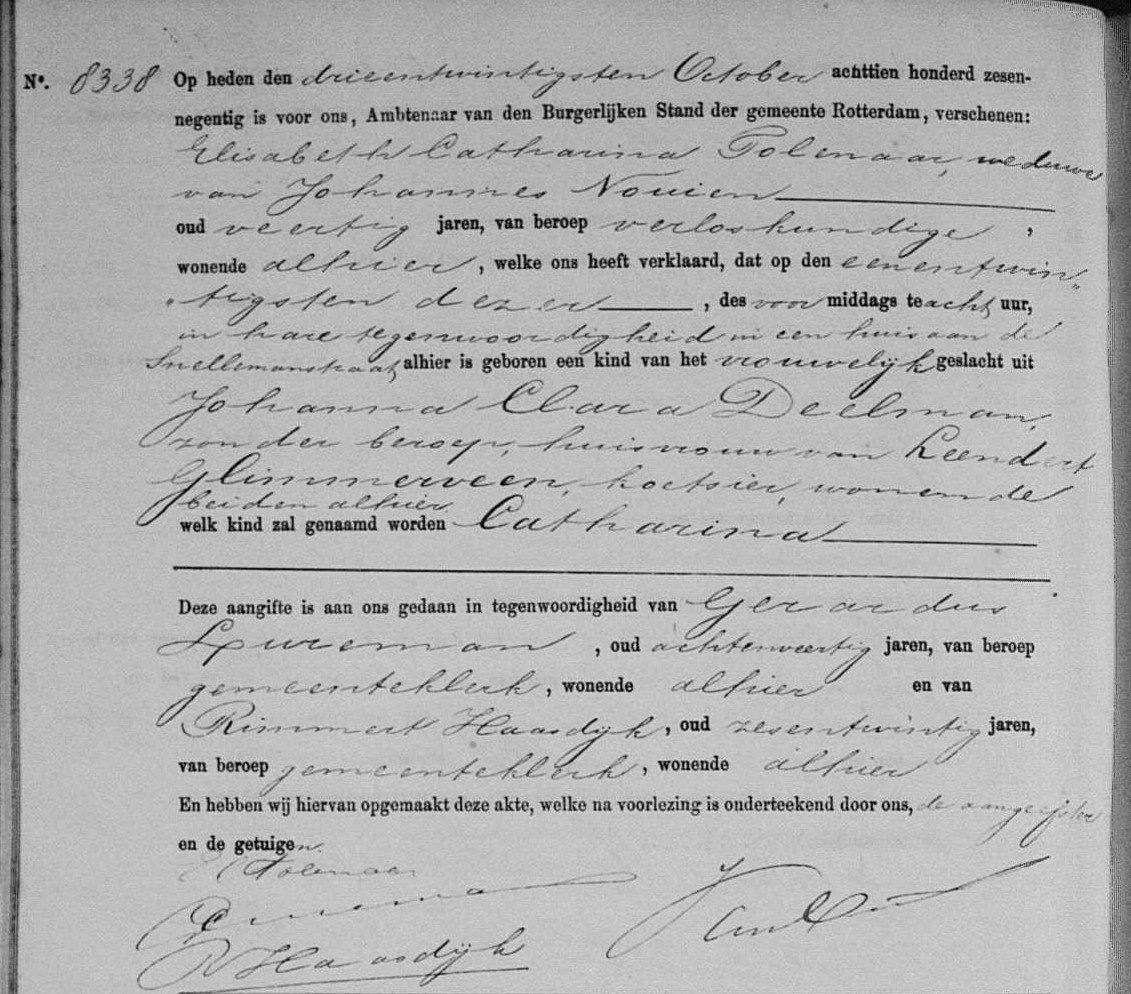 No. 8338 Op heden den drieentwintigsten October achttien honderd zesen-
negentig is voor ons, Ambtenaar van den Burgerlijken Stand der gemeente Rotterdam, verschenen:
Elisabeth Catharina Tolenaar, weduwe
van Johannes Nouien
oud veertig jaren, van beroep verloskundige,
wonende alhier, welke ons heeft verklaard, dat op den eenentwin„
„tigsten dezer, des voor middags te acht uur,
in hare tegenwoordigheid in een huis aan de
Snellemanstraat, alhier is geboren een kind van het vrouwelijk geslacht uit
Johanna Clara Deelman,
zonder beroep, huisvrouw van Leendert
Glimmerveen, koetsier, wonende
beiden alhier
welk kind zal genaamd worden Catharina
Deze aangifte is aan ons gedaan in tegenwoordigheid van Gerardus
Lureman, oud achtenveertig jaren, van beroep
gemeenteklerk, wonende alhier en van
Rimmert Haasdijk, oud zesentwintig jaren,
van beroep gemeenteklerk, wonende alhier
En hebben wij hiervan opgemaakt deze akte, welke na voorlezing is onderteekend door ons, de aangeefster
en de getuigen.
E C Tolenaar
R Haasdijk